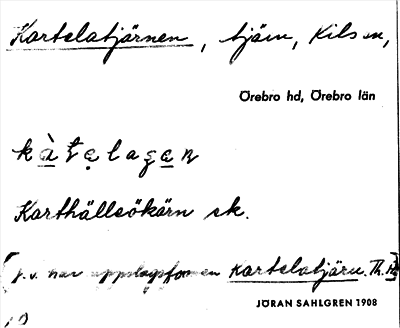 Kartelatjärnen, tjärn, Kils sn,
Örebro hd, Örebro län
kàtelagen
Karthällsökärn sk.
[p. v. har uppslagsformen Kartelatjärn. Th.
JÖRAN SAHLGREN 1908